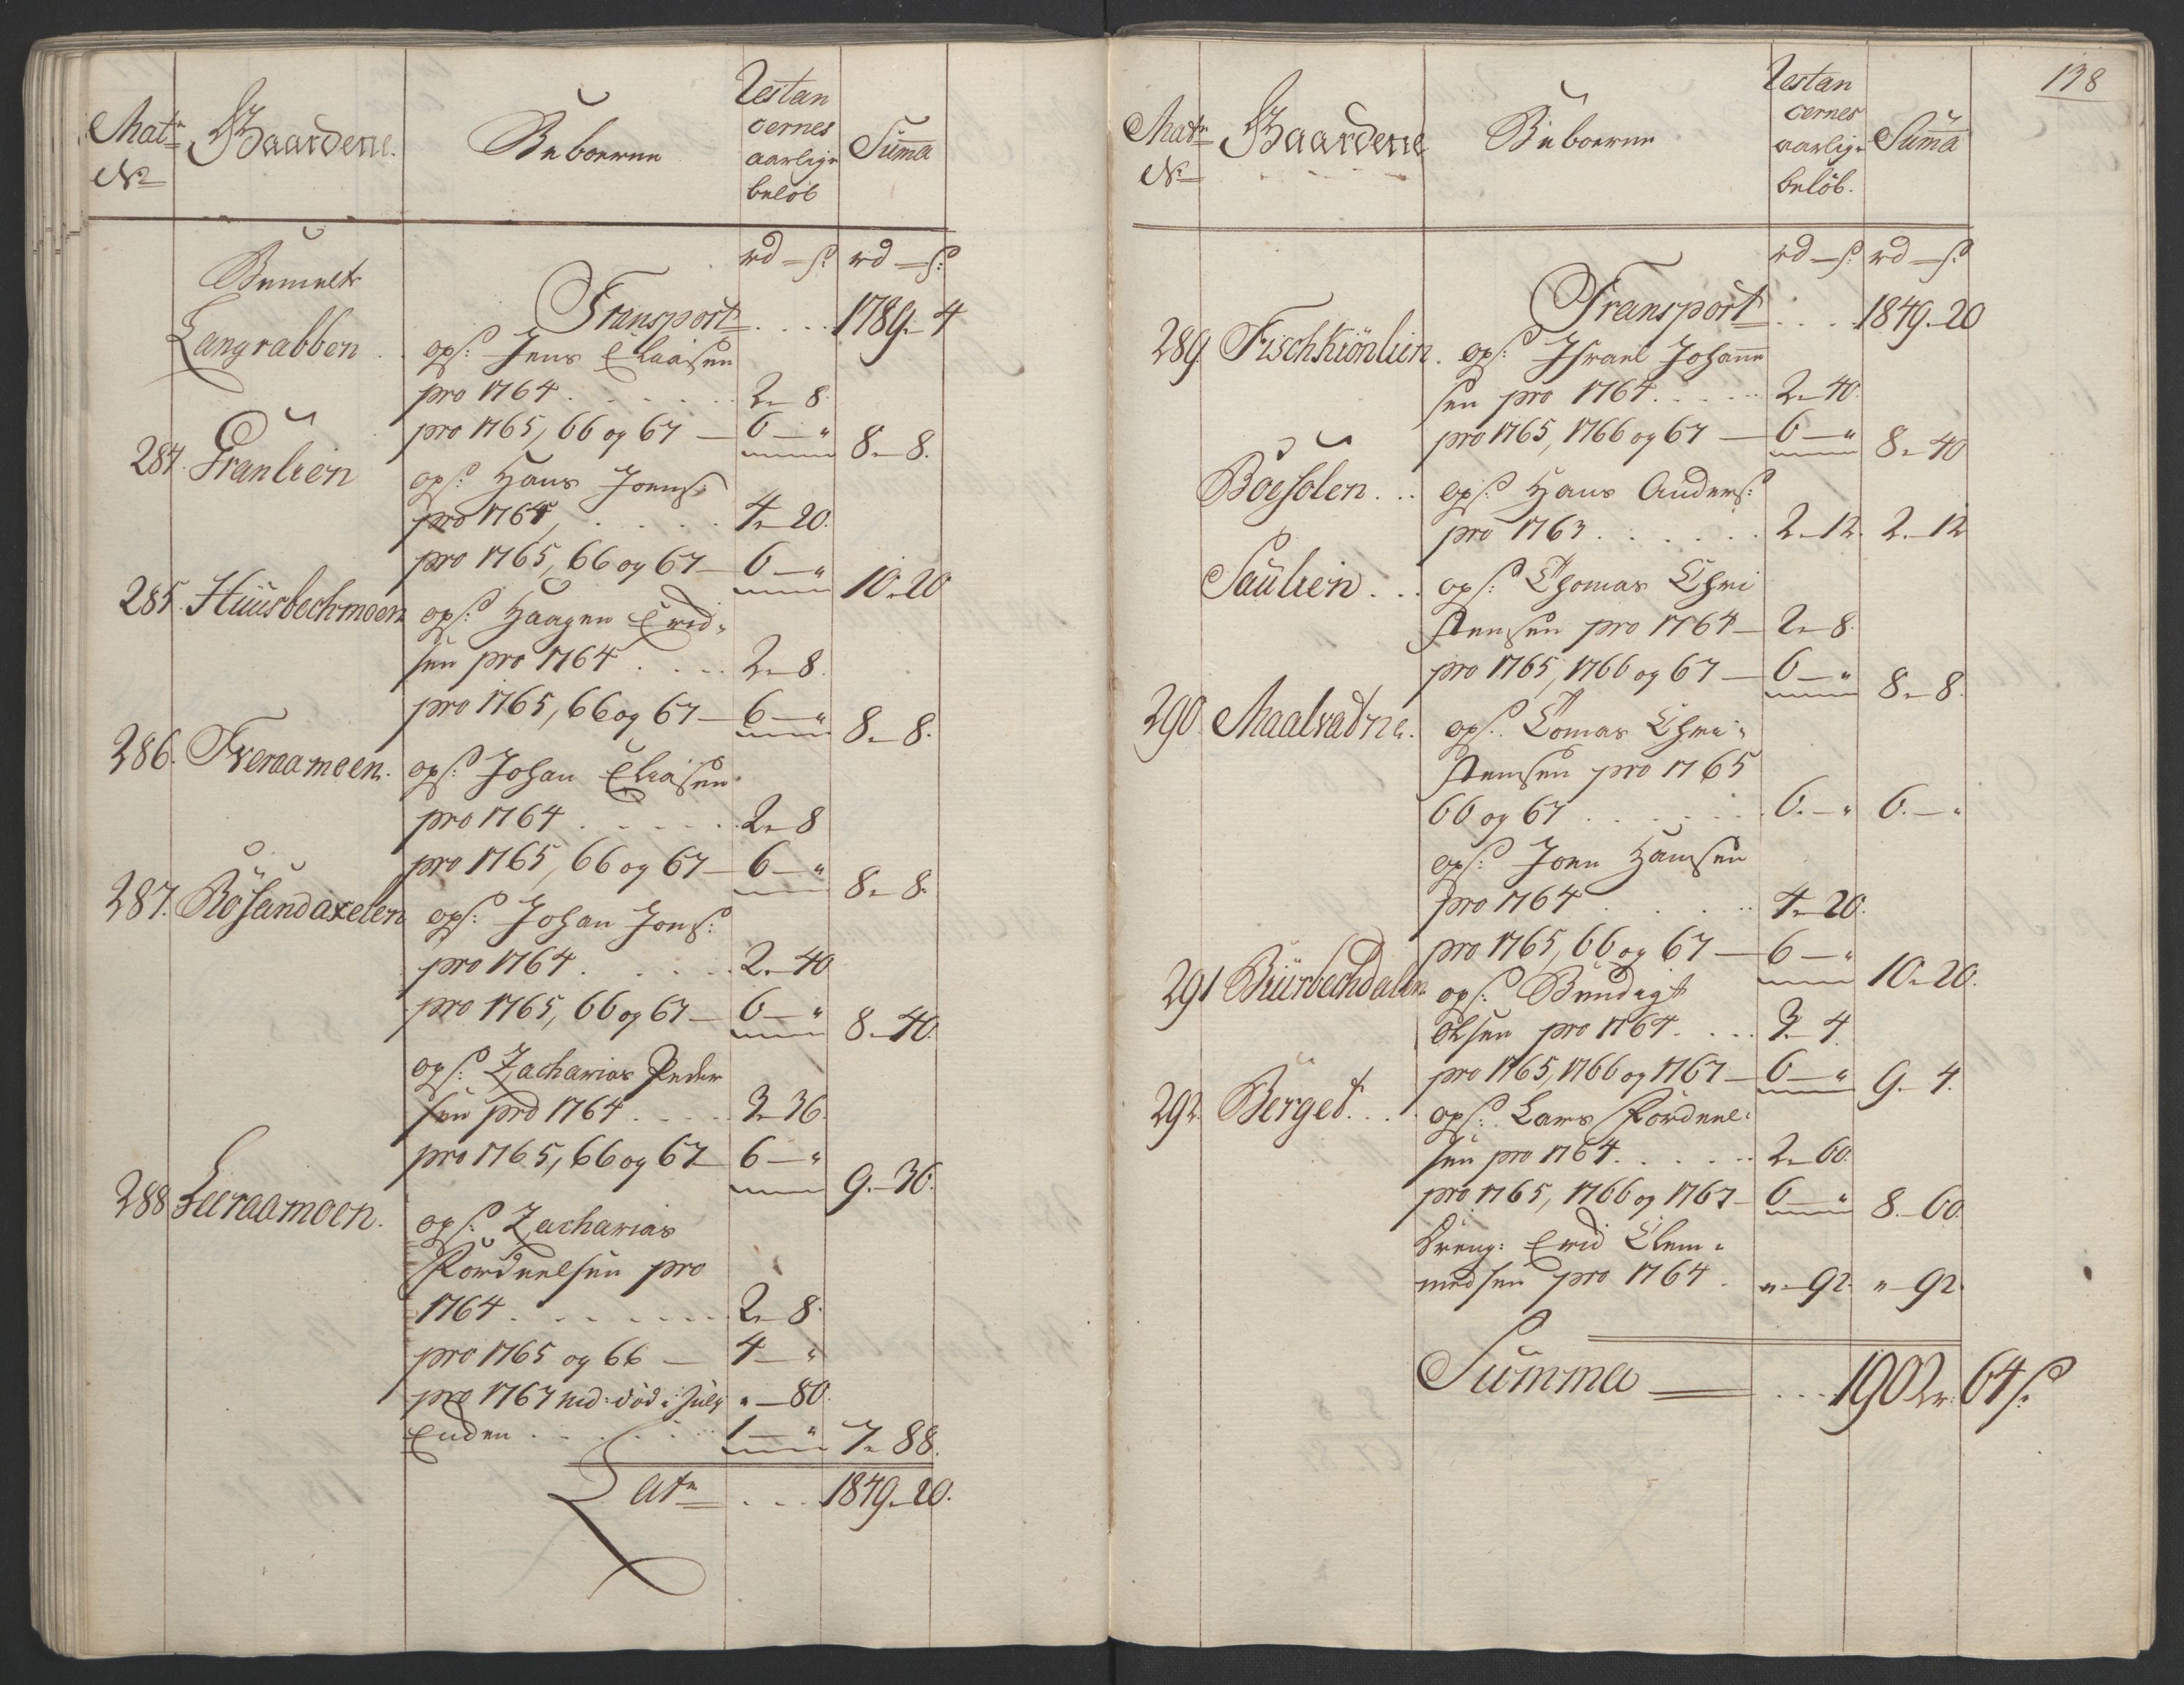 Matr Gaardene. Beboerne Restan
cernes
aarlige
beløb Summa
No
rd – s: rd – s:
Bemelte
Transport . . . 1789. 4
Langrabben . . ops: Jens Eliasen
pro 1764 . . . . . 2 – 8.
pro 1765, 66 og 67 – 6 – " 8 – 8.
284. Granlien ops: Hans Joens:
pro 1764, . . . . 4 – 20.
pro 1765, 66 og 67 – 6 – " 10 – 20
285. Huusbechmoen ops: Haagen Erid-
sen pro 1764 . . . . 2 – 8.
pro 1765, 66 og 67 – 6 – " 8 – 8.
286. Tveraamoen. ops: Johan Eliasen
pro 1764 . . . . . . 2 – 8
pro 1765, 66 og 67 – 6 – " 8 – 8.
287. Rösandaxelen ops: Johan Jons:
pro 1764 . . . . . 2 – 40
pro 1765, 66 og 67 – 6 – " 8 – 40.
ops: Zacharias Peder
sen pro 1764 . . . . 3 – 36.
pro 1765, 66 og 67 6 – " 9 – 36.
288 Leeraamoen. ops: Zacharias
Pordeelsen pro
1764 . . . . . . . 2 – 8.
pro 1765 og 66 – 4 – "
pro 1767 ned: död i July " – 80.
Enden . . . . . . 1 – " 7 – 88.
Latr . . . 1849 – 20.
138
Matr Gaardene Beboerne Restan
cernes
aarlige
beløb. Summa
No
rd – s: rd – s:
Transport . . . 1849 – 20
289. Fischkiönlien. ops: Israel Johanne
sen pro 1764 . . . . . 2 – 40.
pro 1765, 1766 og 67 – 6 – " 8 – 40
Böesolen . . . ops: Hans Anders:
pro 1763 . . . . . . 2 – 12. 2 – 12
Saulien . . . ops: Thomas Chri
stensen pro 1764 – 2 – 8.
pro 1765, 1766 og 67 – 6 – " 8 – 8.
290. Maalvatne. ops: Tomas Chri-
stensen pro 1765
66 og 67 . . . . . . . 6 – " 6 – "
ops: Joen Hansen
pro 1764 . . . . 4 – 20.
pro 1765, 66 og 67 – 6 – " 10 – 20.
291 Buurbechdalen ops: Bendigt
Olsen pro 1764 . . . . 3 – 4.
pro 1765, 1766 og 1767 – 6 – " 9 – 4.
292. Berget . . . . ops: Lars Pordeel-
sen pro 1764 . . . . . . 2 – 60.
pro 1765, 1766 og 1767 – 6 – " 8 – 60.
Dreng: Erid Clem-
medsen pro 1764 . " – 92. " – 92.
Summa – . . . 1902 r: 64 s: